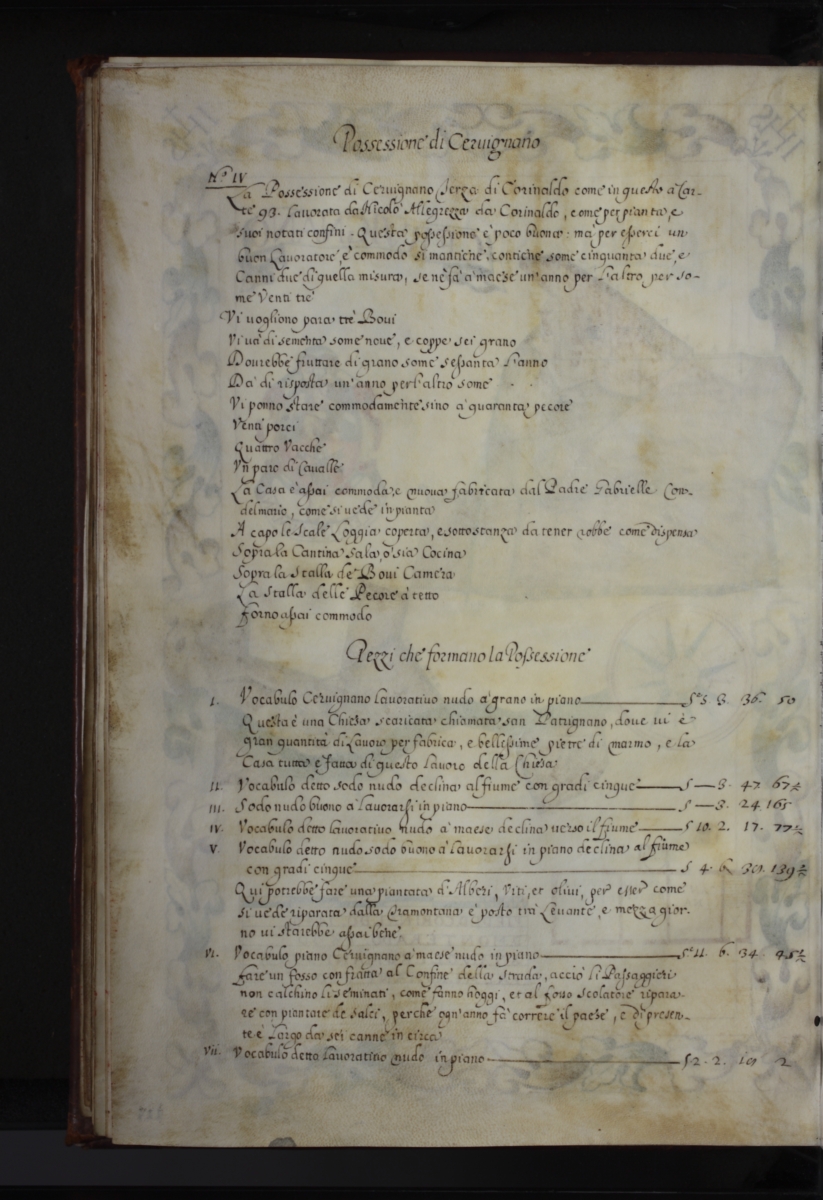 Possessione di Ceruignano
N.° IV
La Possessione di Ceruignano Serza di Corinaldo come in questo à Car-
te 93. lauorata da Nicolò Allegrezza da Corinaldo, come per pianta, e
suoi notati confini. Questa possessione è poco buona: ma per esserci un
buon Lauoratore, è commodo si mantiche. contiche some cinquanta due, e
Canni due di quella misura, se nè fà à maese un'anno per l'altro per so-
me Venti trè
Vi uogliono para trè Boui
Vi uà di sementa some noue, e coppe sei grano
Dourebbe fruttare di grano some sessanta l'anno
Dà di risposta un'anno per l'altro some
Vi ponno stare commodamente sino à quaranta pecore
Venti porci
Quattro Vacche
Vn paro di Caualle
La Casa è assai commoda, e nuoua fabricata dal Padre Gabrielle Con-
delmario, come si uede in pianta
A capo le Scale Loggia coperta, e sotto stanza da tener robbe come dispensa
Sopra la Cantina Sala, ò sia Cocina
Sopra la Stalla de Boui Camera
La Stalla delle Pecore à tetto
Forno assai commodo
Pezzi che formano la Possessione
I. Vocabulo Ceruignano lauoratiuo nudo à grano in piano S.e 5 3. 36. 50
Questa è una Chiesa scaricata chiamata san Patrignano, doue ui è
gran quantità di Lauoro per fabrica, e bellessime pietre di marmo, e la
Casa tutta è fatta di questo lauoro della Chiesa
II. Vocabulo detto sodo nudo declina al fiume con gradi cinque S — 3. 47. 67½
III. Sodo nudo buono à lauorarsi in piano S — 3. 24. 165
IV. Vocabulo detto lauoratiuo nudo à maese declina uerso il fiume S 10. 2. 17. 77½
V Vocabulo detto nudo sodo buono à lauorarsi in piano declina al fiume
con gradi cinque S 4. 6. 30. 139½
Qui potrebbe fare una piantata d'Alberi, Viti, et oliui, per esser come
si uede riparata dalla Tramontana è posto trà Leuante, e mezza gior-
no ui starebbe assai bene.
VI. Vocabulo piano Ceruignano à maese nudo in piano S.e 11. 6. 34. 95½
Fare un fosso con fratta al Confine della Strada, acciò li Passaggieri
non calchino li seminati, come fanno hoggi, et al fosso Scolatore ripara-
re con piantare de salci, perche ogn'anno fà correre il paese, e di presen-
te è Largo da sei canne in circa
VII. Vocabulo detto lauoratiuo nudo in piano S 2. 2. 19 2